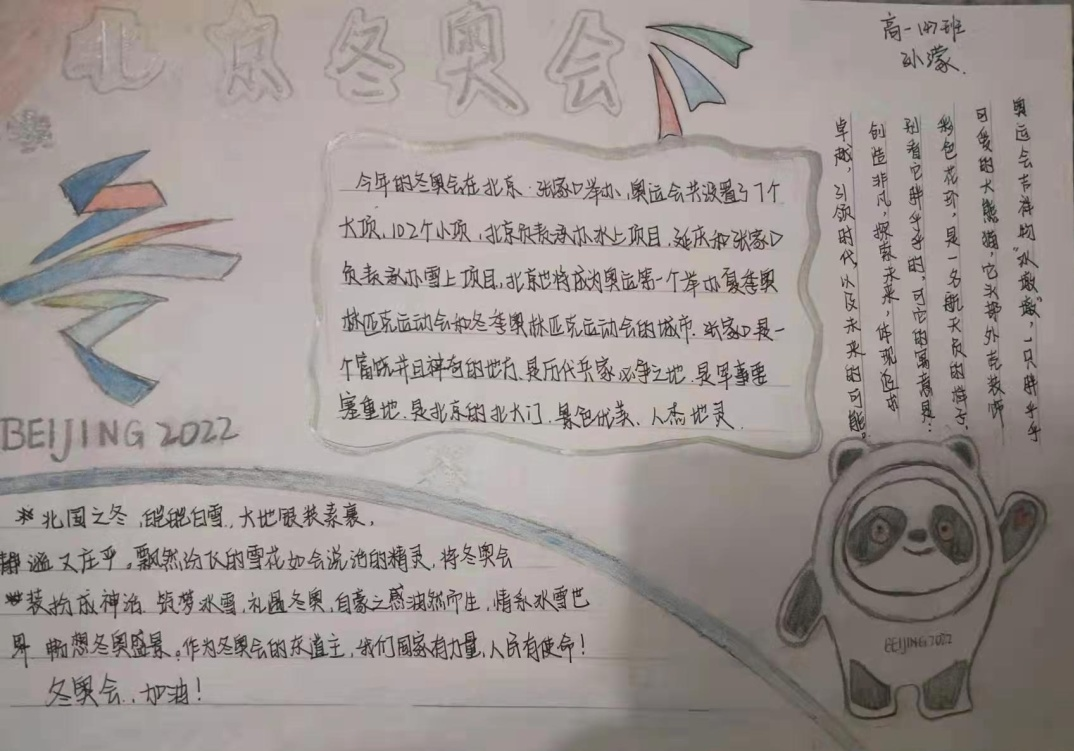 北京冬奥会
高一(7)班
孙濛
今年的冬奥会在北京.张家口举办,奥运会共设置了7个
大项,102个小项,北京负责承办冰上项目,延庆和张家口
负责承办雪上项目,北京也将成为奥运第一个举办夏季奥
林匹克运动会和冬季奥林匹克运动会的城市.张家口是一
个富饶并且神奇的地方.是历代兵家必争之地.是军事要
塞重地.是北京的北大门.景色优美.人杰地灵.
奥运会吉祥物"冰墩墩",一只胖乎乎
可爱的大熊猫,它头部外壳装饰
彩色花环,是一名航天员的样子,
别看它胖乎乎的,可它的寓意是:
创造非凡,探索未来,体现追求
卓越,引领时代,以及未来的可能。
BEIJING 2022
冬
*北国之冬,皑皑白雪,大地银装素裹,
静谧又庄乎。飘然纷飞的雪花如会说话的精灵,将冬奥会
*装扮成神话.筑梦冰雪,礼遇冬奥,自豪之感油然而生,情系冰雪世
界 畅想冬奥盛景。作为冬奥会的东道主,我们国家有力量,人民有使命!
冬奥会,加油!
BEIJING 2022